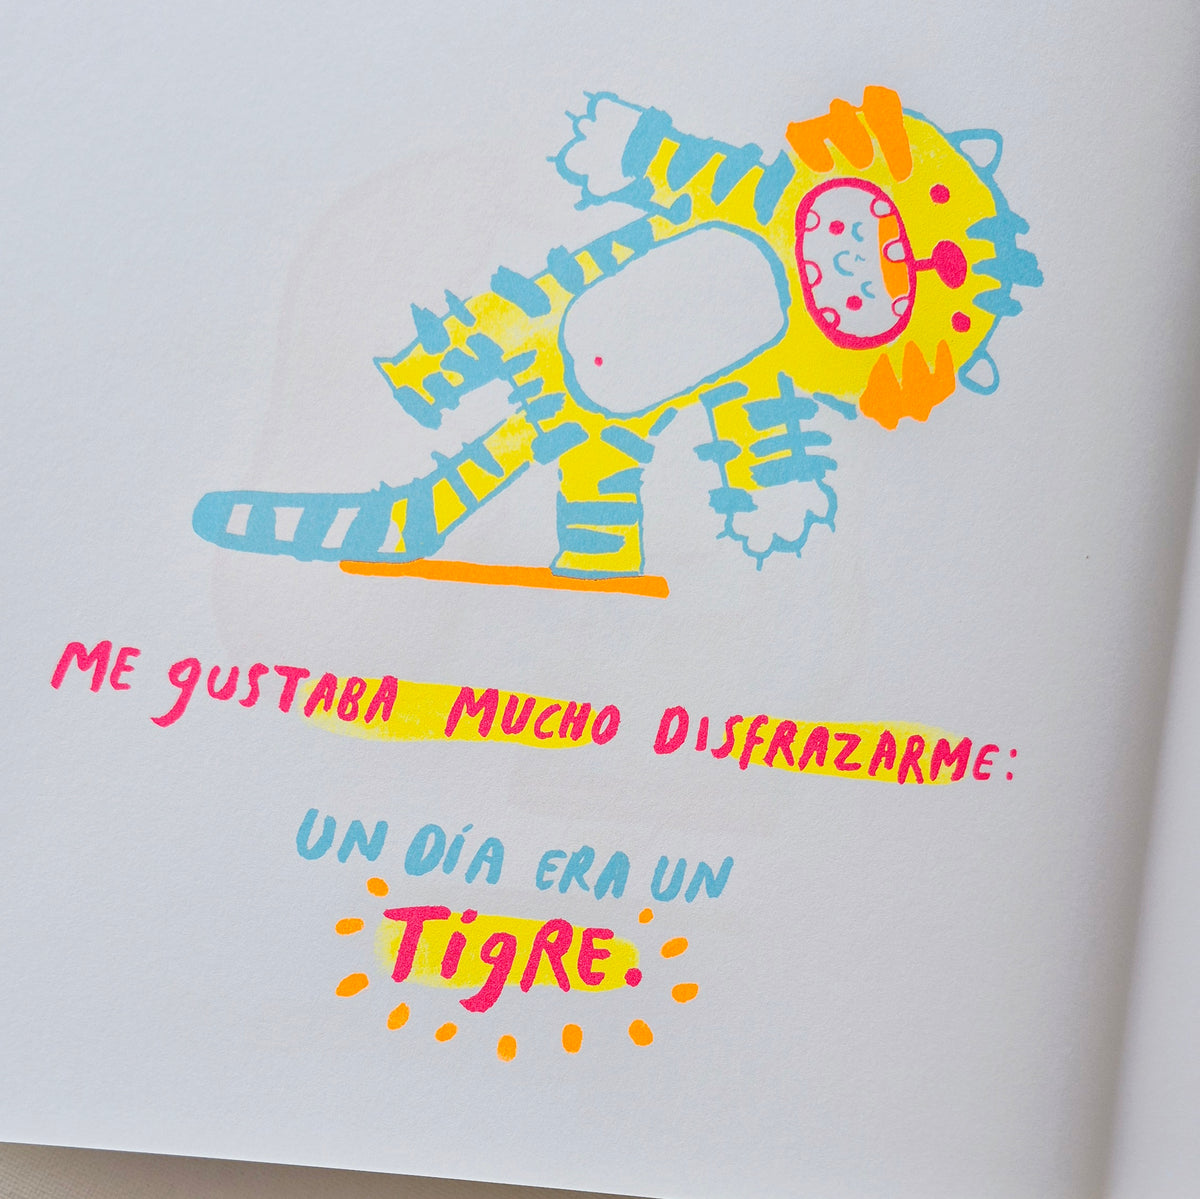 ME GUSTABA MUCHO DISFRAZARME:
UN DÍA ERA UN
TIGRE.